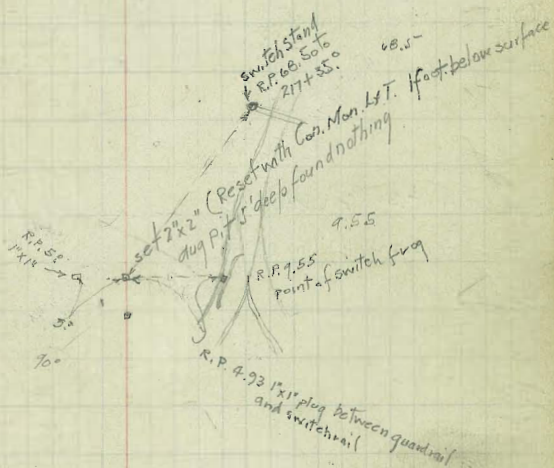 switch stand
R.P. 68.50 to
217+35.0
68.5
set 2"x2" (Reset with Con. Mon. L&T. 1 foot below surface
dug pit 5' deep found nothing
9.55
R.P. 5.0
1"x1"
R.P. 9.55
point of switch frog
90°
R.P. 4.93 1"x1" plug between guardrail
and switchrail